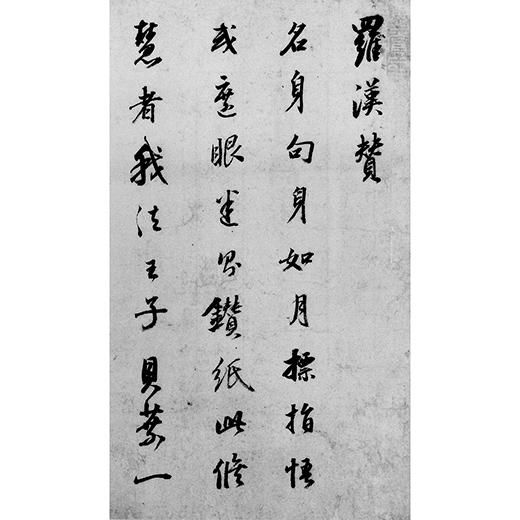 羅漢贊
名身句身如月標指悟
或遮眼迷只鑽紙此修
慧者我法王子貝葉一